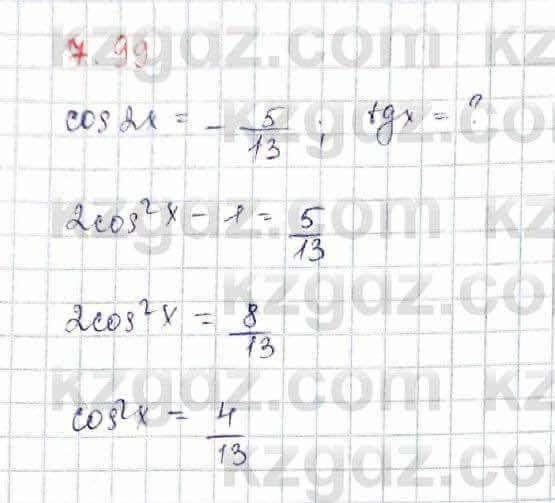 7.99
cos2x = - 5/13 ; tgx = ?
2cos²x - 1 = 5/13
2cos²x = 8/13
cos²x = 4/13
kzgdz.com